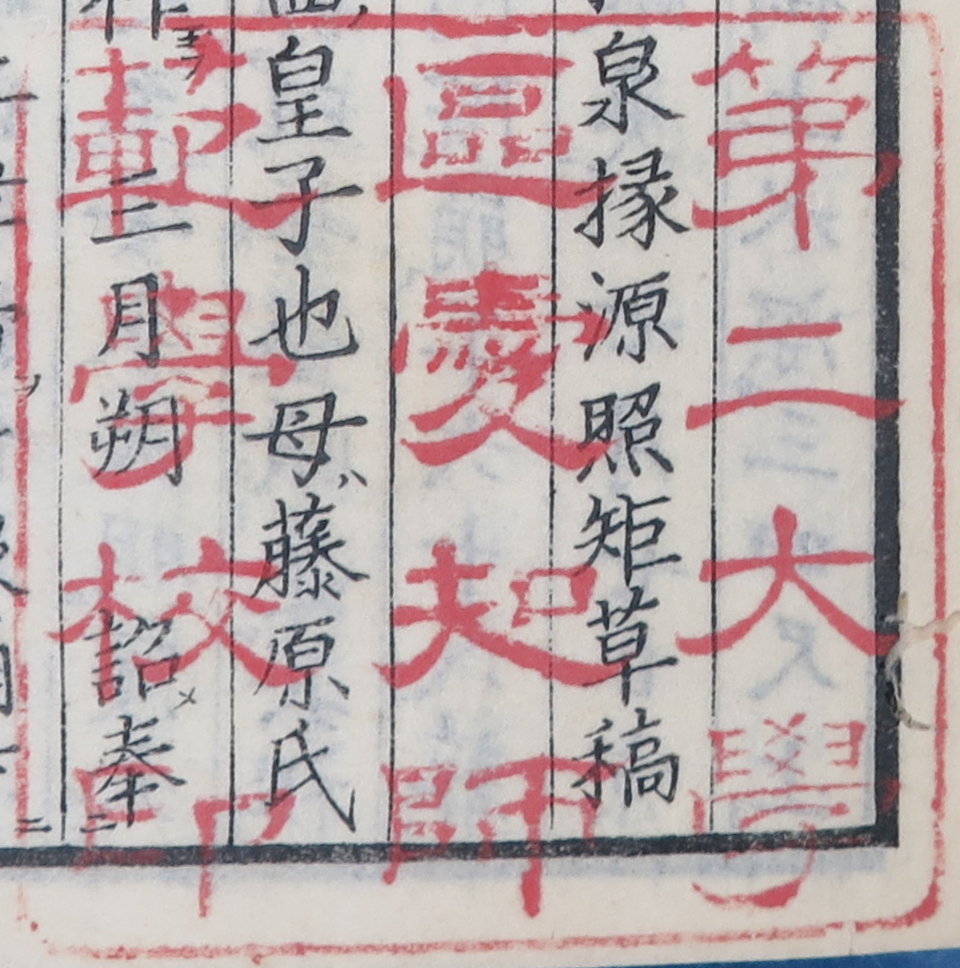 第二大學
區愛知師
範學校印
泉掾源照矩草稿
皇子也母ハ藤原氏
月朔 詔メ奉二